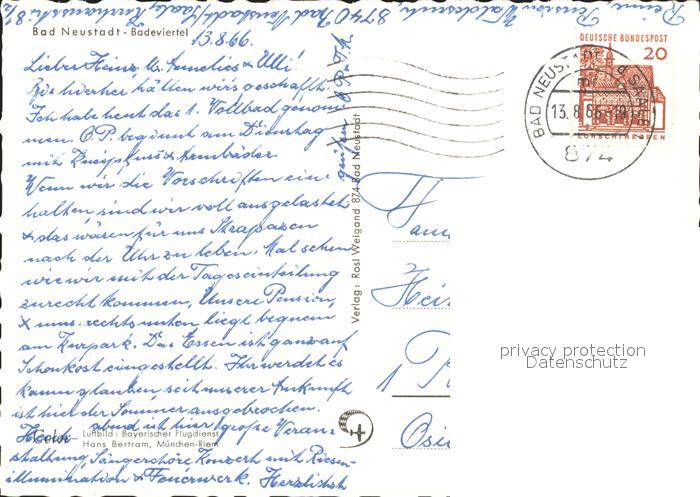 Bad Neustadt - Badeviertel
13.8.66.
Lieber Heinz, Cornelius & Ulli!
Bis hierher hätten wir's geschafft.
Ich habe heut das 1. Vollbad genom-
men. O.P. beginnt am Dienstag
mit Kneippkuss & Armbäder
Wenn wir die Vorschriften ein-
halten, sind wir voll ausgelastet
& das wären für uns Strapazen
nach der Uhr zu leben. Mal sehen
wie wir mit der Tageseinteilung
zurecht kommen. Unsere Pension,
X uns. rechts unten, liegt bequem
am Kurpark. Das Essen ist ganz auf
Schonkost eingestellt. Ihr werdet es
kaum glauben, seit unserer Ankunft
ist hier der Sommer ausgebrochen.
Heut abend ist hier große Veran-
staltung, Sängerchöre Konzert mit Riesen-
illumination & Feuerwerk. Herzlichst
grüßen
Luftbild: Bayerischer Flugdienst
Hans Bertram, München-Riem
Verlag: Rosl Weigand 874 Bad Neustadt
8740 Bad Neustadt/Saale
DEUTSCHE BUNDESPOST
20
LORSCH/HESSEN
BAD NEUSTADT
13.8.66
874
Fam
Hei
privacy protection
Datenschutz